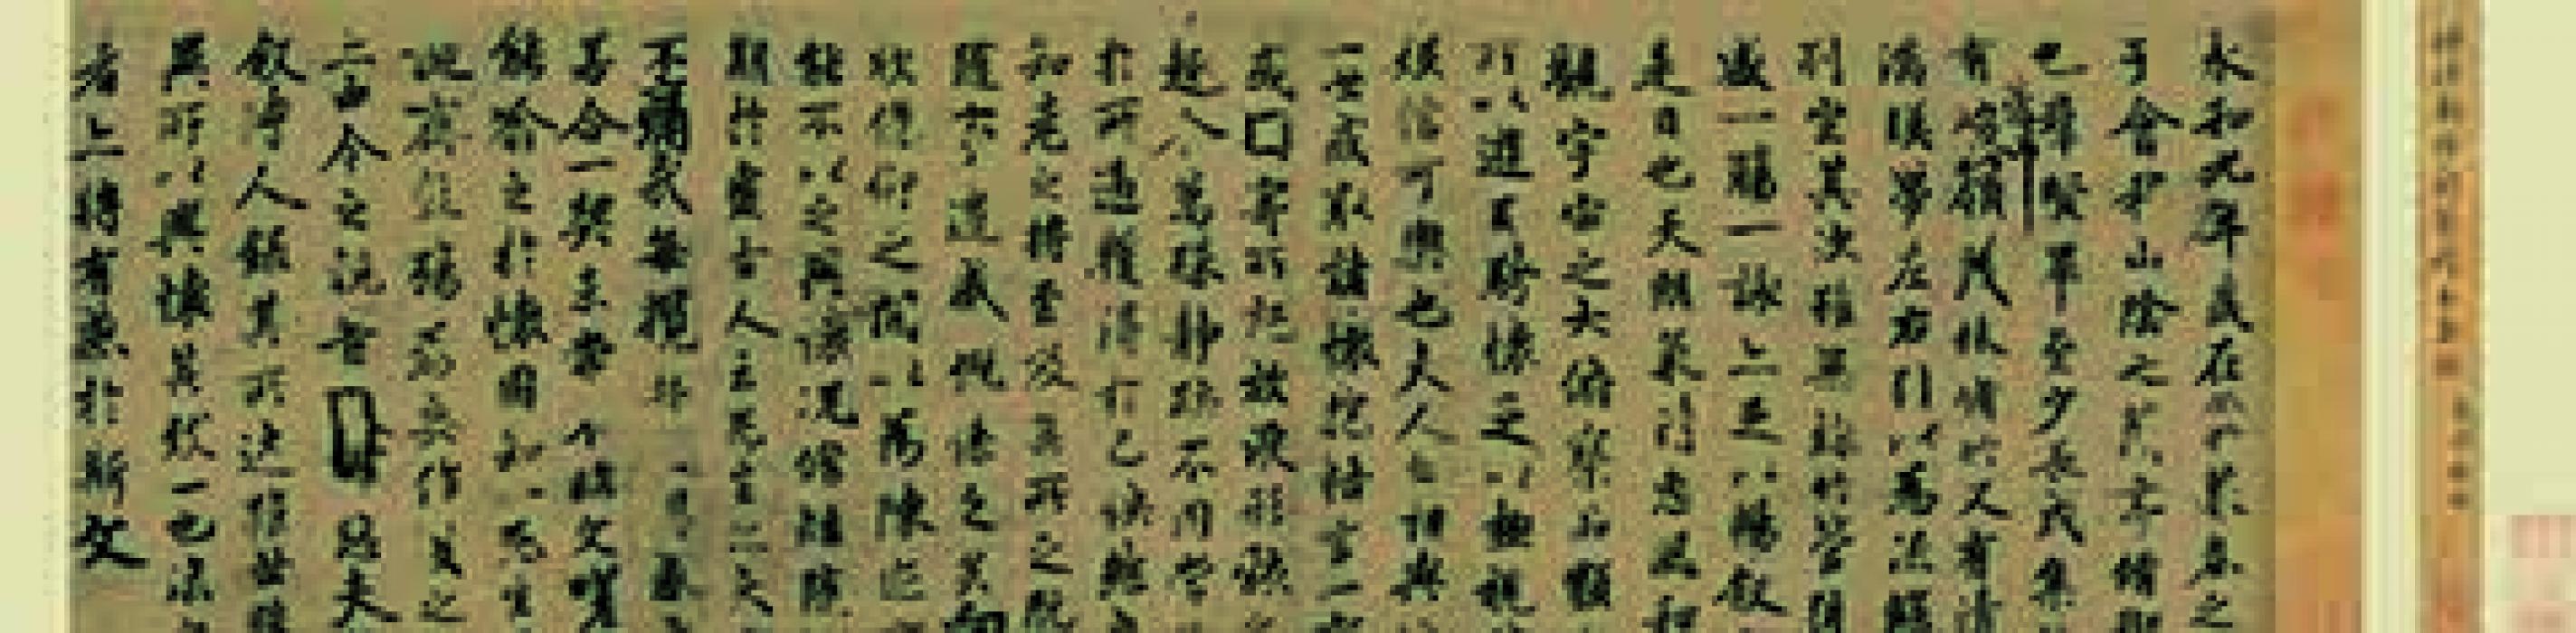 永和九年歲在癸丑暮春之
于會稽山陰之蘭亭脩禊
也群賢畢至少長咸集
崇山
有峻領茂林脩竹又有清
湍暎帶左右引以為流觴
列坐其次雖無絲竹管弦
盛一觴一詠亦足以暢敘
是日也天朗氣清惠風和
觀宇宙之大俯察品類
所以遊目騁懷足以極視
娛信可樂也夫人之相與
一世或取諸懷抱悟言一室
或因寄所託放浪形骸
趣舍萬殊靜躁不同當
於所遇蹔得於己怏然自
知老之將至及其所之既
隨事遷感慨係之矣向
欣俛仰之閒以為陳迹
能不以之興懷況脩短隨
期於盡古人云死生亦大
不痛哉每攬昔人興感
若合一契未嘗不臨文嗟
能喻之於懷固知一死生
誕齊彭殤為妄作後之
亦由今之視昔悲夫
敘時人錄其所述雖世殊
異所以興懷其致一也後
者亦將有感於斯文